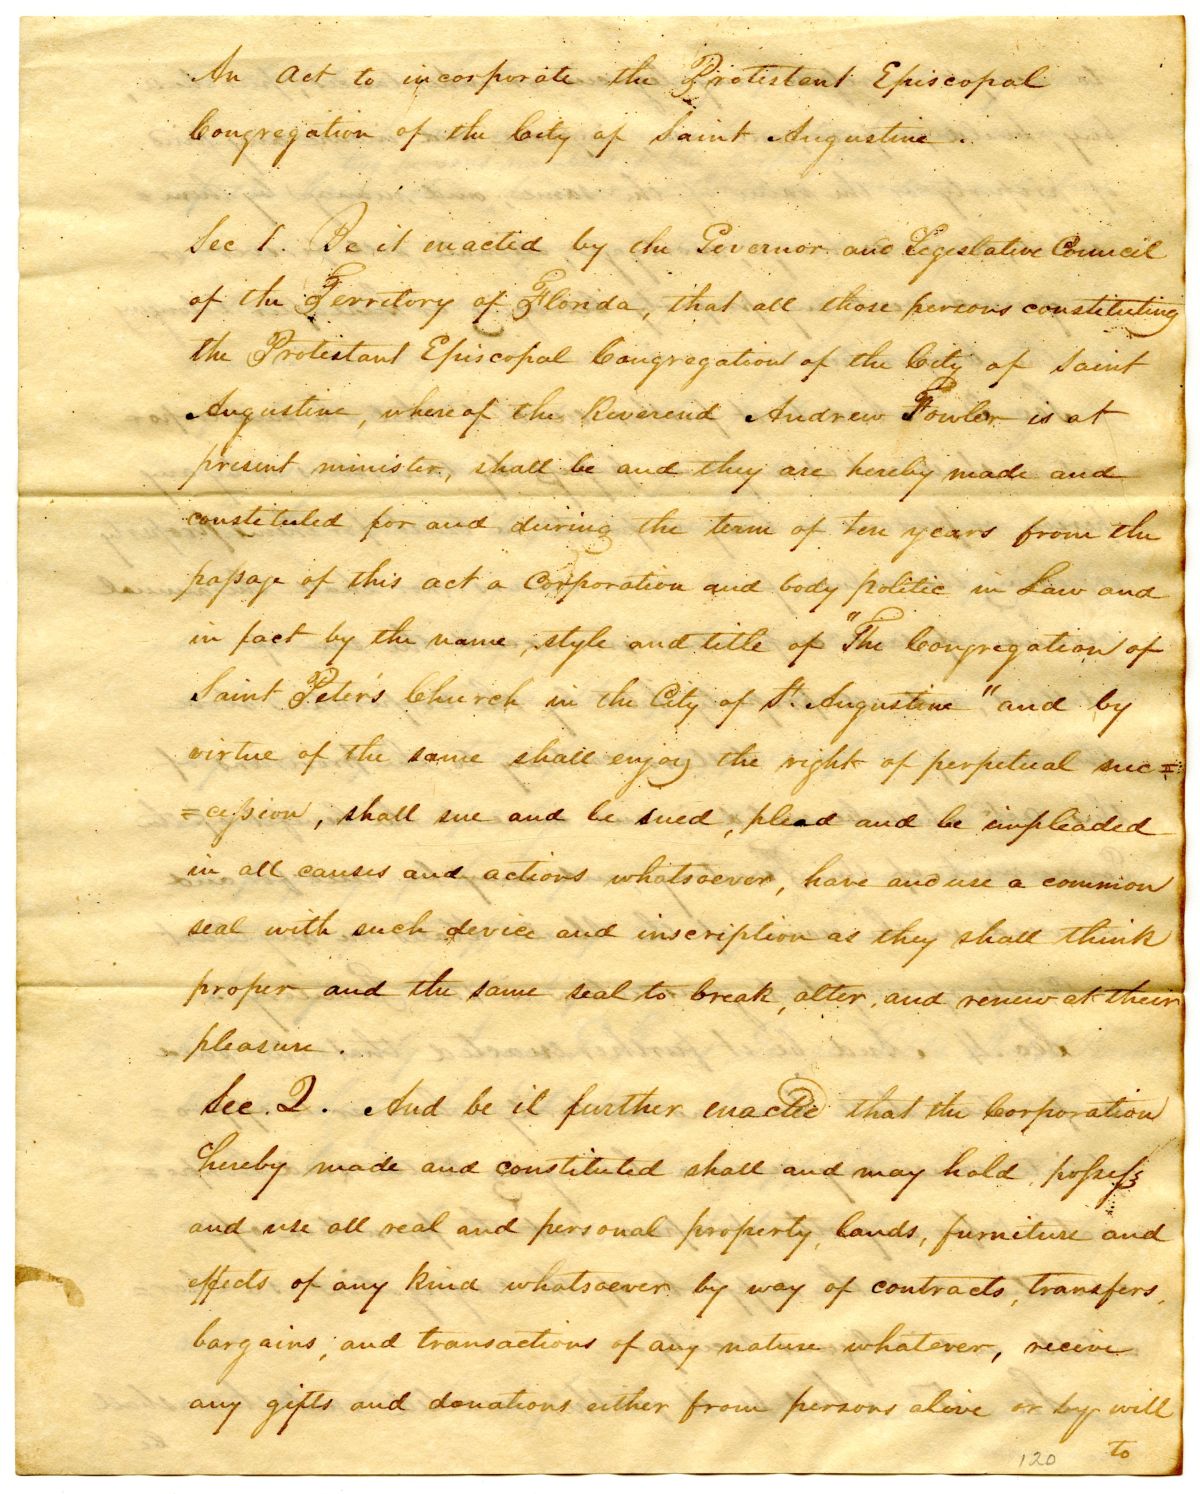 An Act to incorporate the Protestant Episcopal
Congregation of the City of Saint Augustine.
Sec 1. Be it enacted by the Governor and Legislative Council
of the Territory of Florida, that all those persons constituting
the Protestant Episcopal Congregation of the City of Saint
Augustine, whereof the Reverend Andrew Fowler is at
present minister, shall be and they are hereby made and
constituted for and during the term of ten years from the
paſsage of this act a Corporation and body politic in Law and
in fact by the name, style and title of "The Congregation of
Saint Peter's Church in the City of St. Augustine" and by
virtue of the same shall enjoy the right of perpetual suc=
=ceſsion, shall sue and be sued, plead and be impleaded
in all causes and actions whatsoever, have and use a common
seal with such device and inscription as they shall think
proper and the same seal to break, alter, and renew at their
pleasure.
Sec. 2. And be it further enacted that the Corporation
hereby made and constituted shall and may hold, poſseſs
and use all real and personal property, lands, furniture and
effects of any kind whatsoever by way of contracts, transfers,
bargains, and transactions of any nature whatever, receive
any gifts and donations either from persons alive or by will
to
120